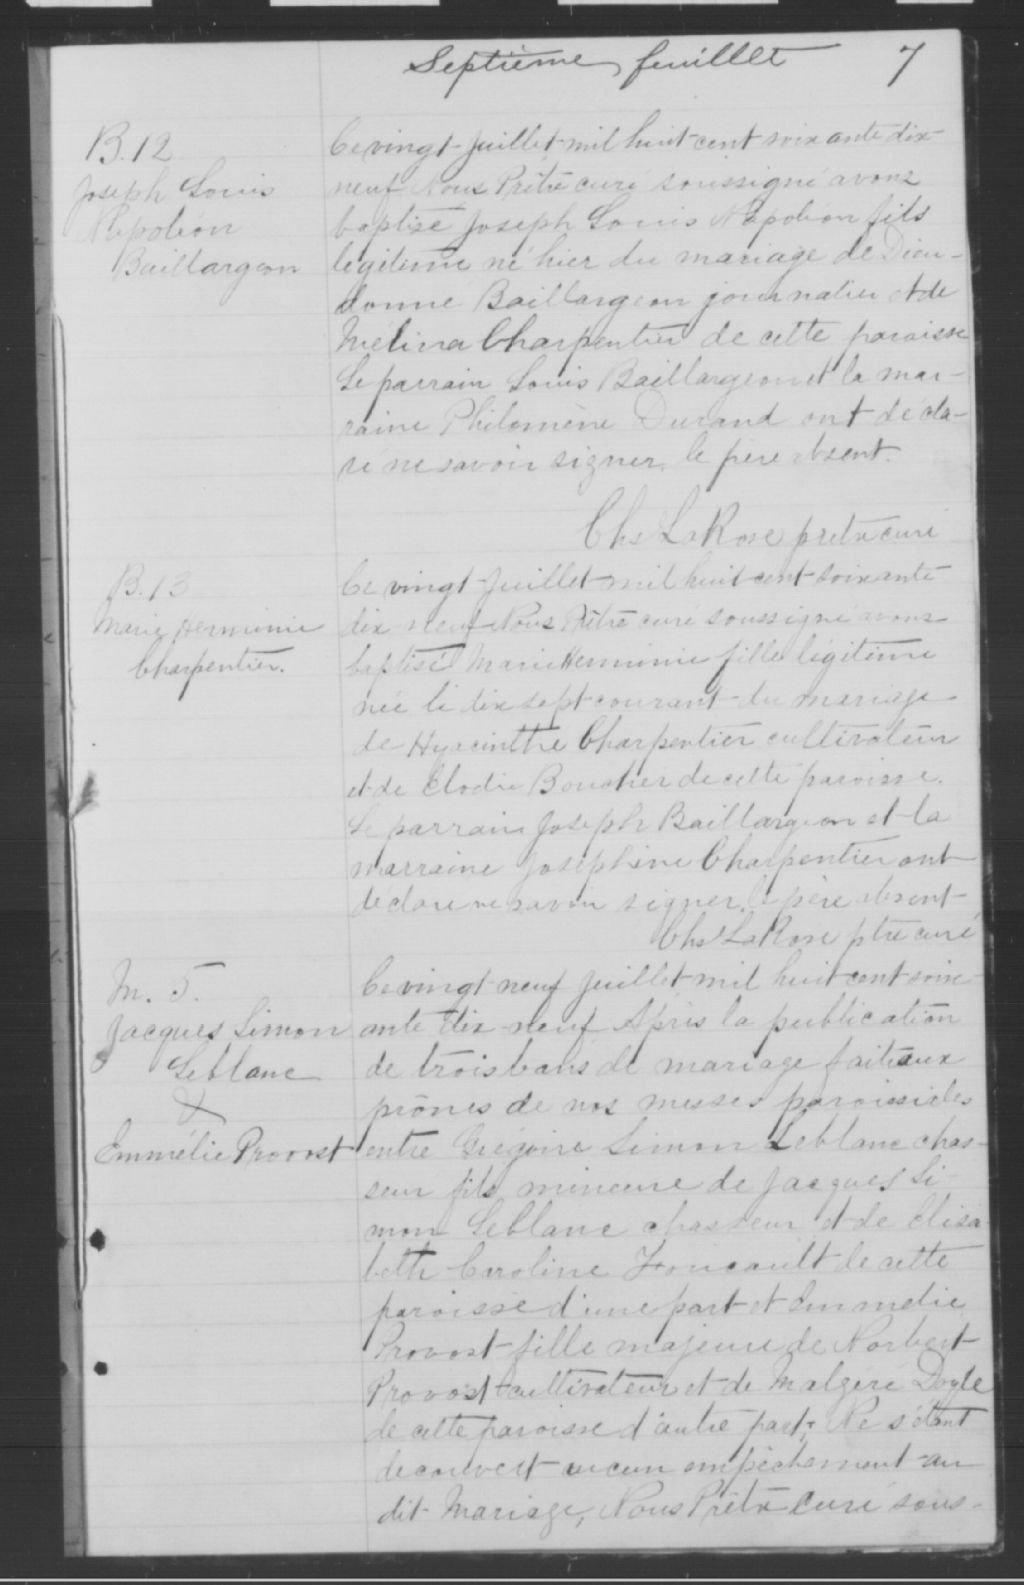 Septième feuillet 7
B.12
Joseph Louis
Napoléon
Baillargeon
Ce vingt Juillet mil huit cent soixante dix
neuf Nous Prêtre curé soussigné avons
baptisé Joseph Louis Napoléon fils
légitime né hier du mariage de Dieu-
donné Baillargeon journalier et de
Mélina Charpentier de cette paroisse
Le parrain Louis Baillargeon et la mar-
raine Philomène Durand ont décla-
ré ne savoir signer, le père absent.
Chs LaRose prêtre curé
B.13
Marie Herminie
Charpentier.
Ce vingt Juillet mil huit cent soixante
dix neuf Nous Prêtre curé soussigné avons
baptisé Marie Herminie fille légitime
née le dix sept courant du mariage
de Hyacinthe Charpentier cultivateur
et de Elodie Boucher de cette paroisse.
Le parrain Joseph Baillargeon et la
marraine Joséphine Charpentier ont
déclaré ne savoir signer, le père absent
Chs LaRose ptre curé
M. 5.
Jacques Simon
Leblanc
&
Emmélie Provost
Ce vingt neuf Juillet mil huit cent soix-
ante dix-neuf Après la publication
de trois bans de mariage faite aux
prônes de nos messes paroissiales
entre Grégoire Simon Leblanc chas-
seur fils mineure de Jacques Si-
mon Leblanc chasseur et de Elisa-
beth Caroline Foucault de cette
paroisse d'une part et Emmelie
Provost fille majeure de Norbert
Provost cultivateur et de Malgere Doyle
de cette paroisse d'autre part; Ne s'étant
decouvert aucun empêchement au
dit Mariage, Nous Prêtre Curé sous-